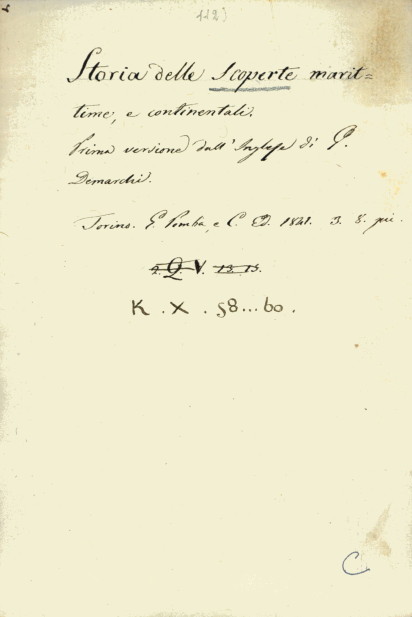 123)
Storia delle Scoperte marit=
time, e continentali.
Prima versione dall'Inglese di G.
Demarchi.
Torino. G. Pomba, e C. Ed. 1841. 3. 8. pic.
Q. V. 13. 15.
K. X. 58...60.
C